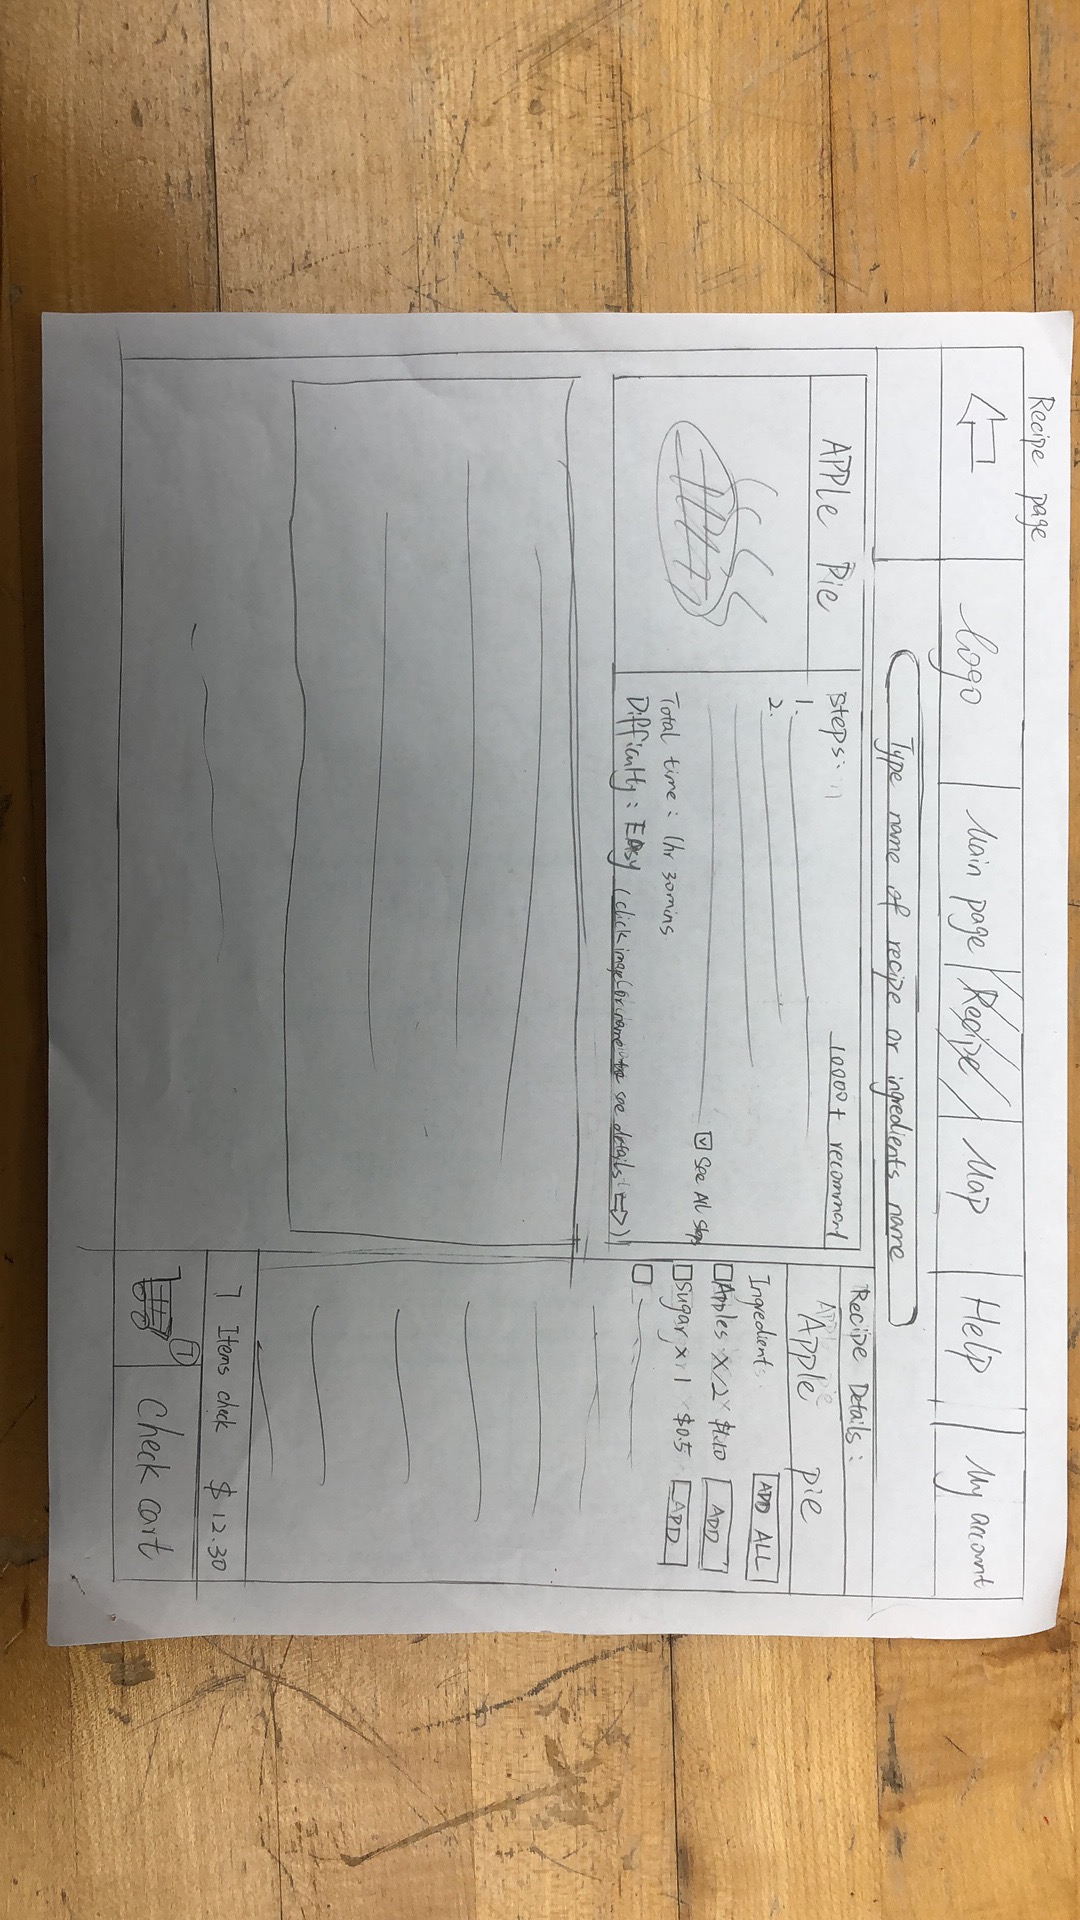 Recipe page
Logo
Main page
Recipe
Map
Help
My account
Type name of recipe or ingredients name
APPle Pie
Steps:
10000+ recommend
1.
2.
See All steps
Total time: 1hr 30mins
Difficulty: EAsy (click image or name to see details ⇨)
Recipe Details:
Apple pie
Ingredients
ADD ALL
Apples x 2
ADD
Sugar x 1 $0.5
ADD
7 Items check $12.30
7
Check cart